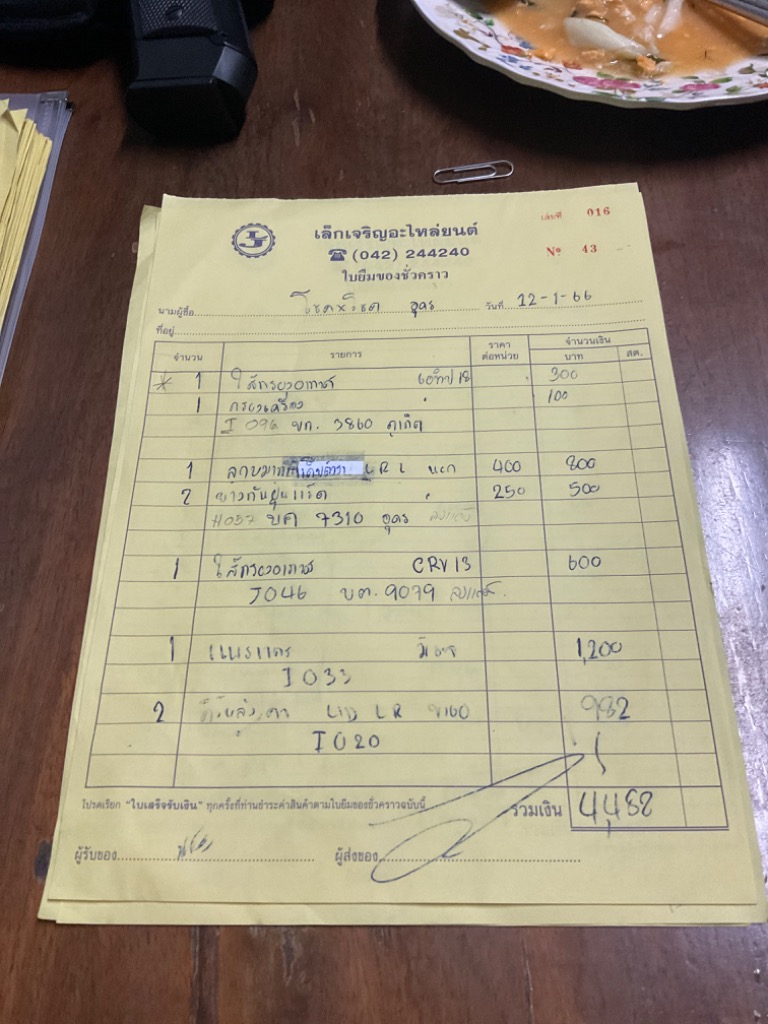 เลขที่ 016
เล็กเจริญอะไหล่ยนต์
(042) 244240
Nº 43
ใบยืมของชั่วคราว
นามผู้ซื้อ อุดร วันที่ 12-1-66
ที่อยู่
จำนวน รายการ ราคาต่อหน่วย จำนวนเงิน
บาท สต.
1 ไส้กรองอากาศ 300
1 กรองเครื่อง 100
I 096 ขก. 3860 ภูเก็ต
1 ลูกหมาก L R L นอก 400 800
2 ยางกันฝุ่นแร็ค 250 500
H057 บค 7310 อุดร
1 ไส้กรองอากาศ CRV 13 600
J046 บต. 9079
1 1,200
I 033
2 L R 982
I 020
โปรดเรียก "ใบเสร็จรับเงิน" ทุกครั้งที่ท่านชำระค่าสินค้าตามใบยืมของชั่วคราวฉบับนี้
รวมเงิน 4,482
ผู้รับของ ผู้ส่งของ